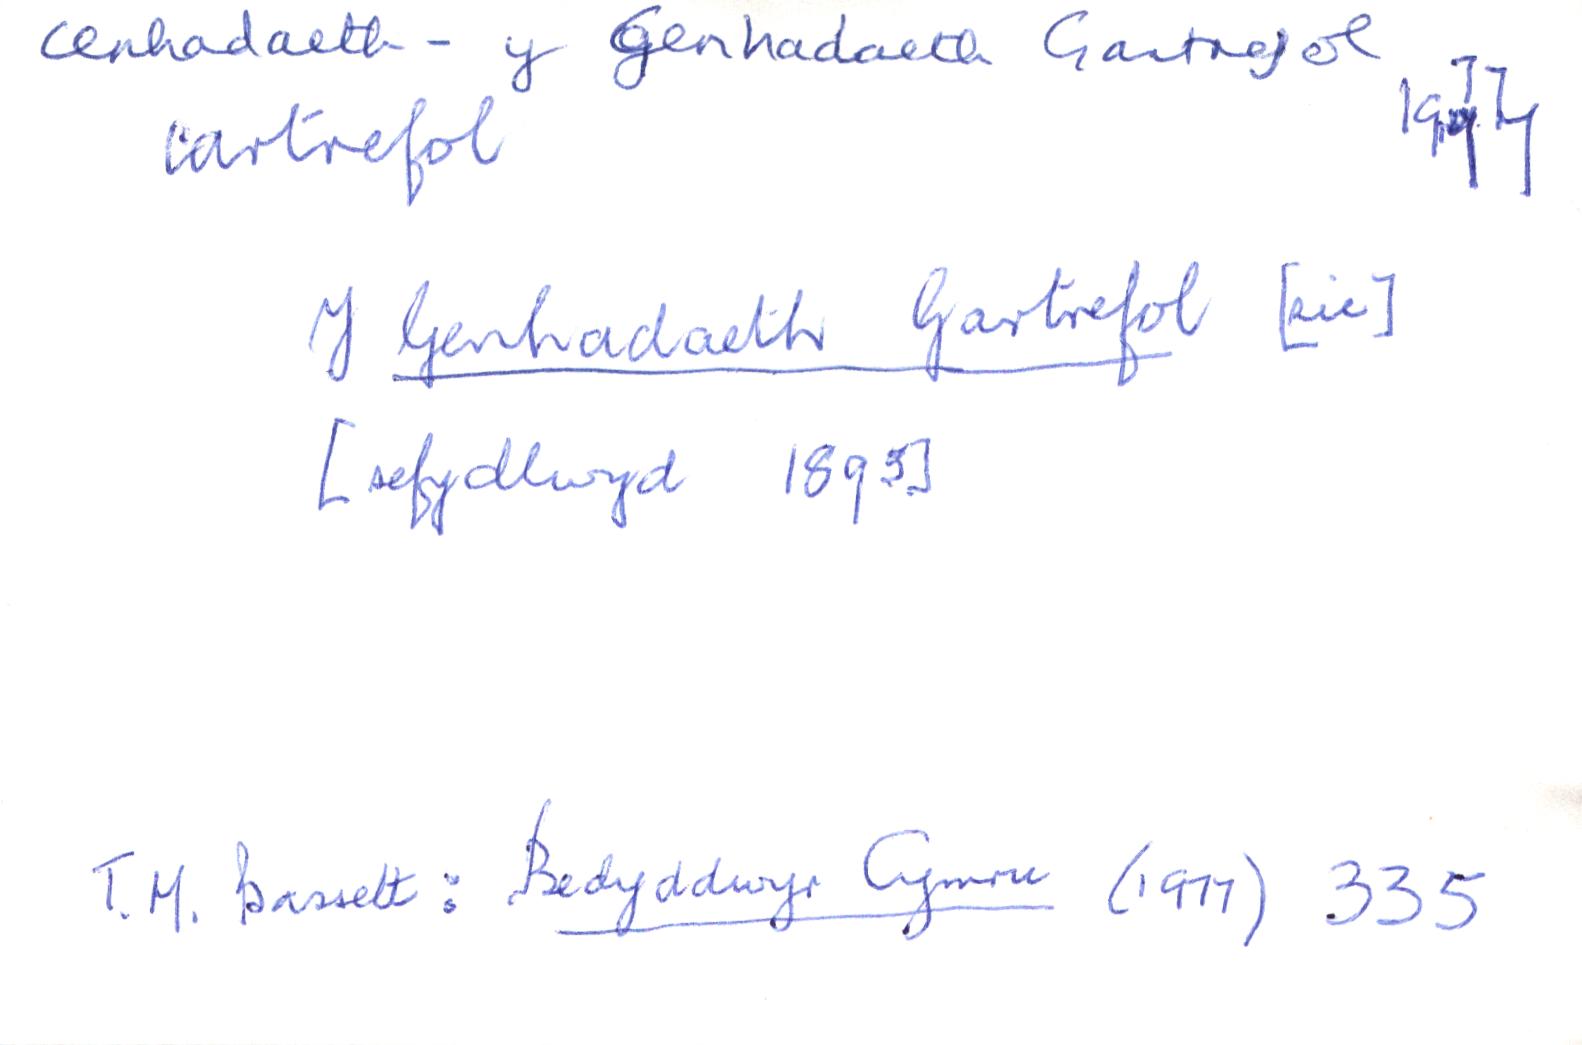 cenhadaeth - y Genhadaeth Gartrefol
cartrefol 1977
Y Genhadaeth Gartrefol [sic]
[sefydlwyd 1895]
T.M. Bassett: Bedyddwyr Cymru (1977) 335